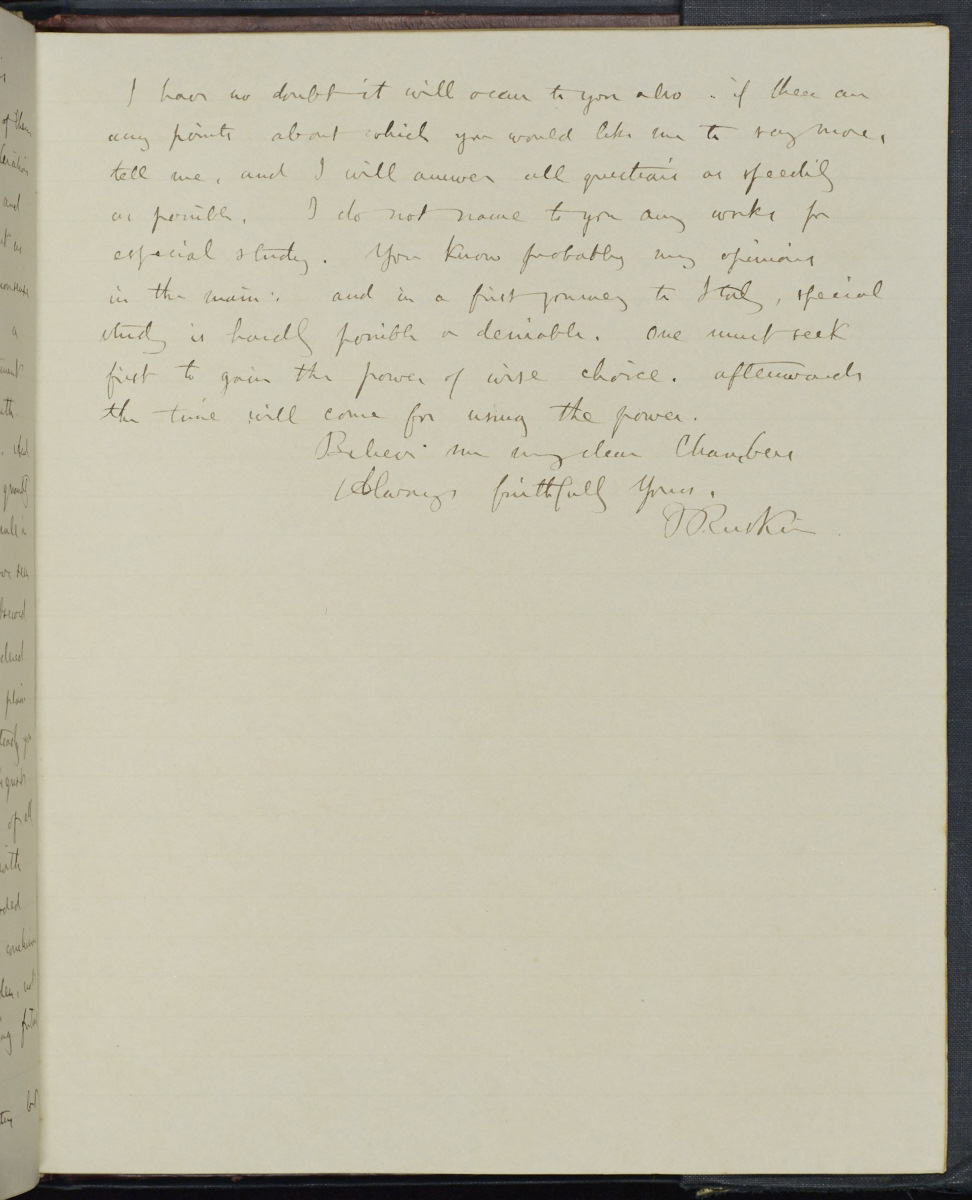 I have no doubt it will occur to you also. if there are
any points about which you would like me to say more,
tell me, and I will answer all questions as speedily
as possible. I do not name to you any works for
especial study. You know probably my opinions
in the main: and in a first journey to Italy, special
study is hardly possible or desirable. One must seek
first to gain the power of wise choice. afterwards
the time will come for using the power.
Believe me my dear Chambers
Always faithfully Yours.
J Ruskin
of them
and
a
with
of all